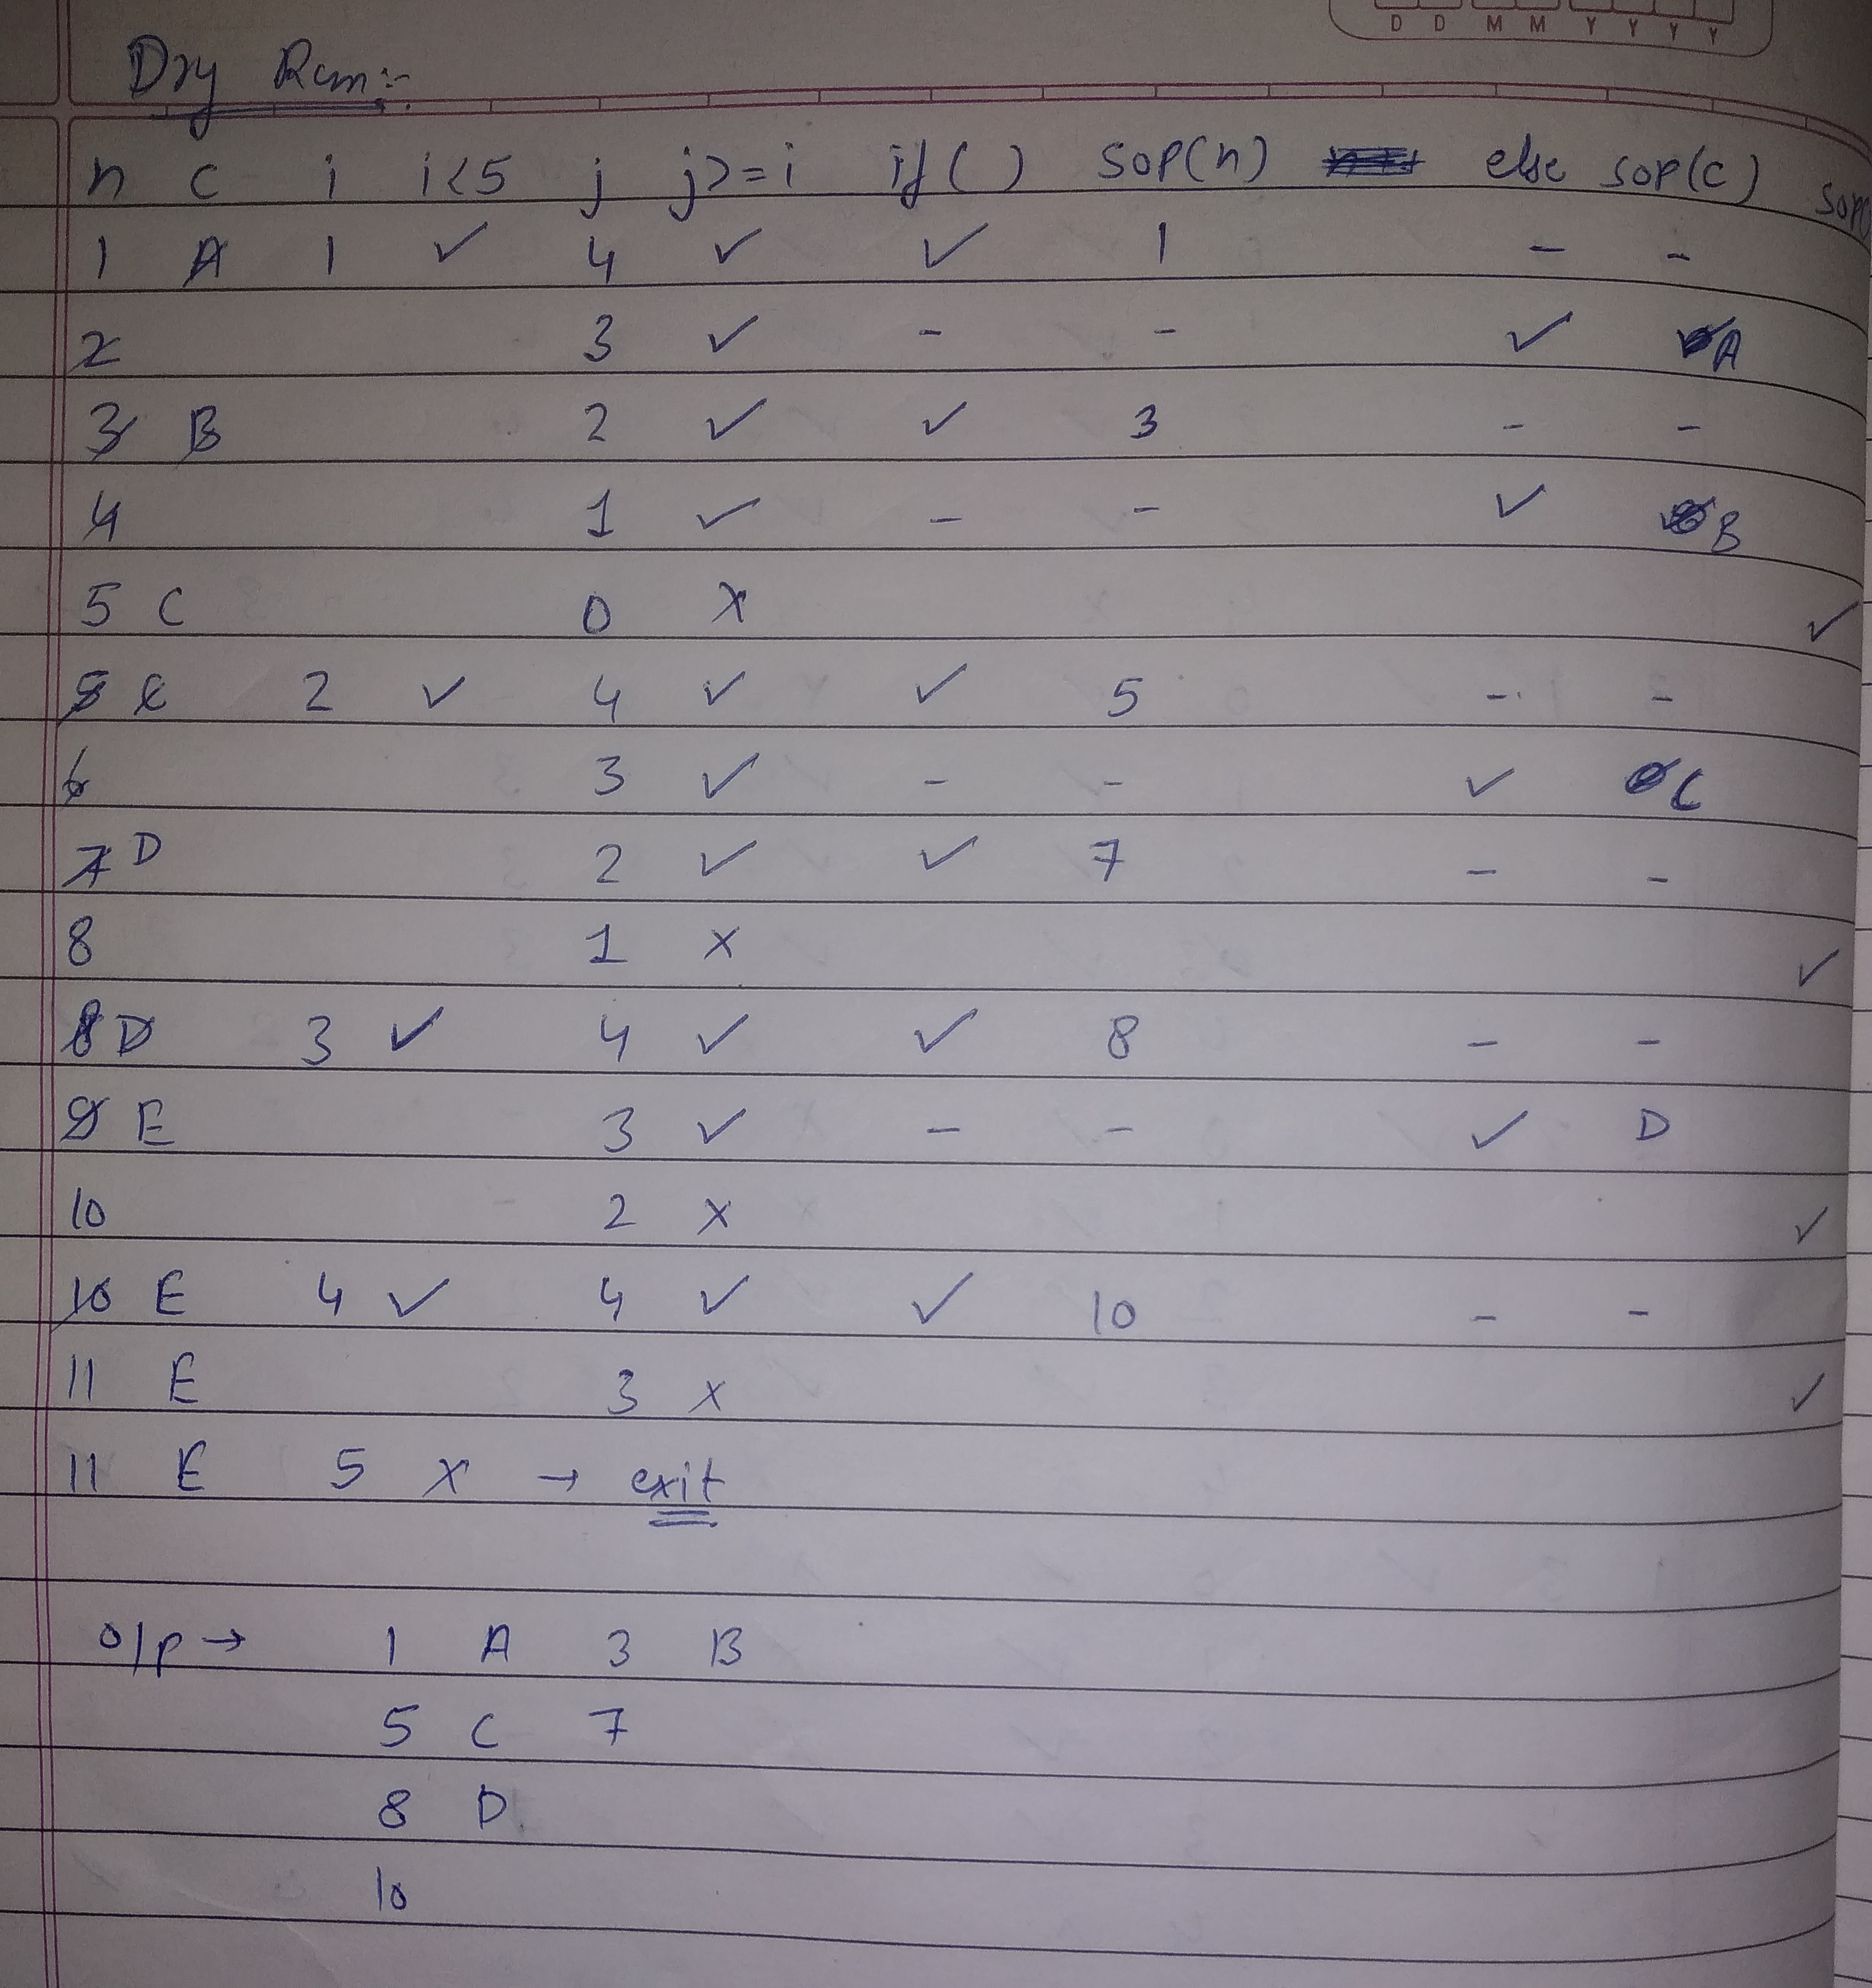 D D M M Y Y Y Y
Dry Run:-
n c i i<5 j j>=i if( ) sop(n) else sop(c)
1 A 1 ✓ 4 ✓ ✓ 1 - -
2 3 ✓ - - ✓ A
3 B 2 ✓ ✓ 3 - -
4 1 ✓ - - ✓ B
5 C 0 x ✓
5 C 2 ✓ 4 ✓ ✓ 5 - -
6 3 ✓ - - ✓ C
7 D 2 ✓ ✓ 7 - -
8 1 x ✓
8 D 3 ✓ 4 ✓ ✓ 8 - -
9 E 3 ✓ - - ✓ D
10 2 x ✓
10 E 4 ✓ 4 ✓ ✓ 10 - -
11 E 3 x ✓
11 E 5 x → exit
o/p → 1 A 3 B
5 C 7
8 D
10